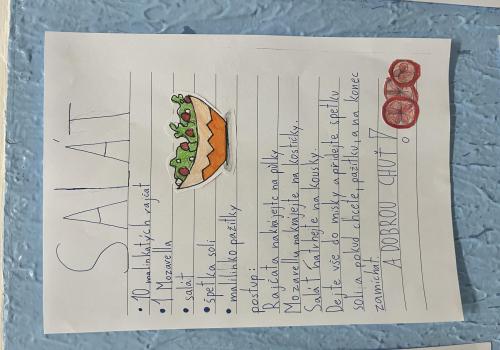 SALÁT
• 10 malinkatých rajčat
• 1 Mozarella
• salát
• špetka soli
• malilinko pažitky
postup:
Rajčata nakrájejte na půlky
Mozarellu nakrájejte na kostičky.
Salát natrhejte na kousky.
Dejte vše do misky a přidejte špetku
soli a pokud chcete, pažitku, a na konec
zamíchat
A DOBROU CHUŤ!